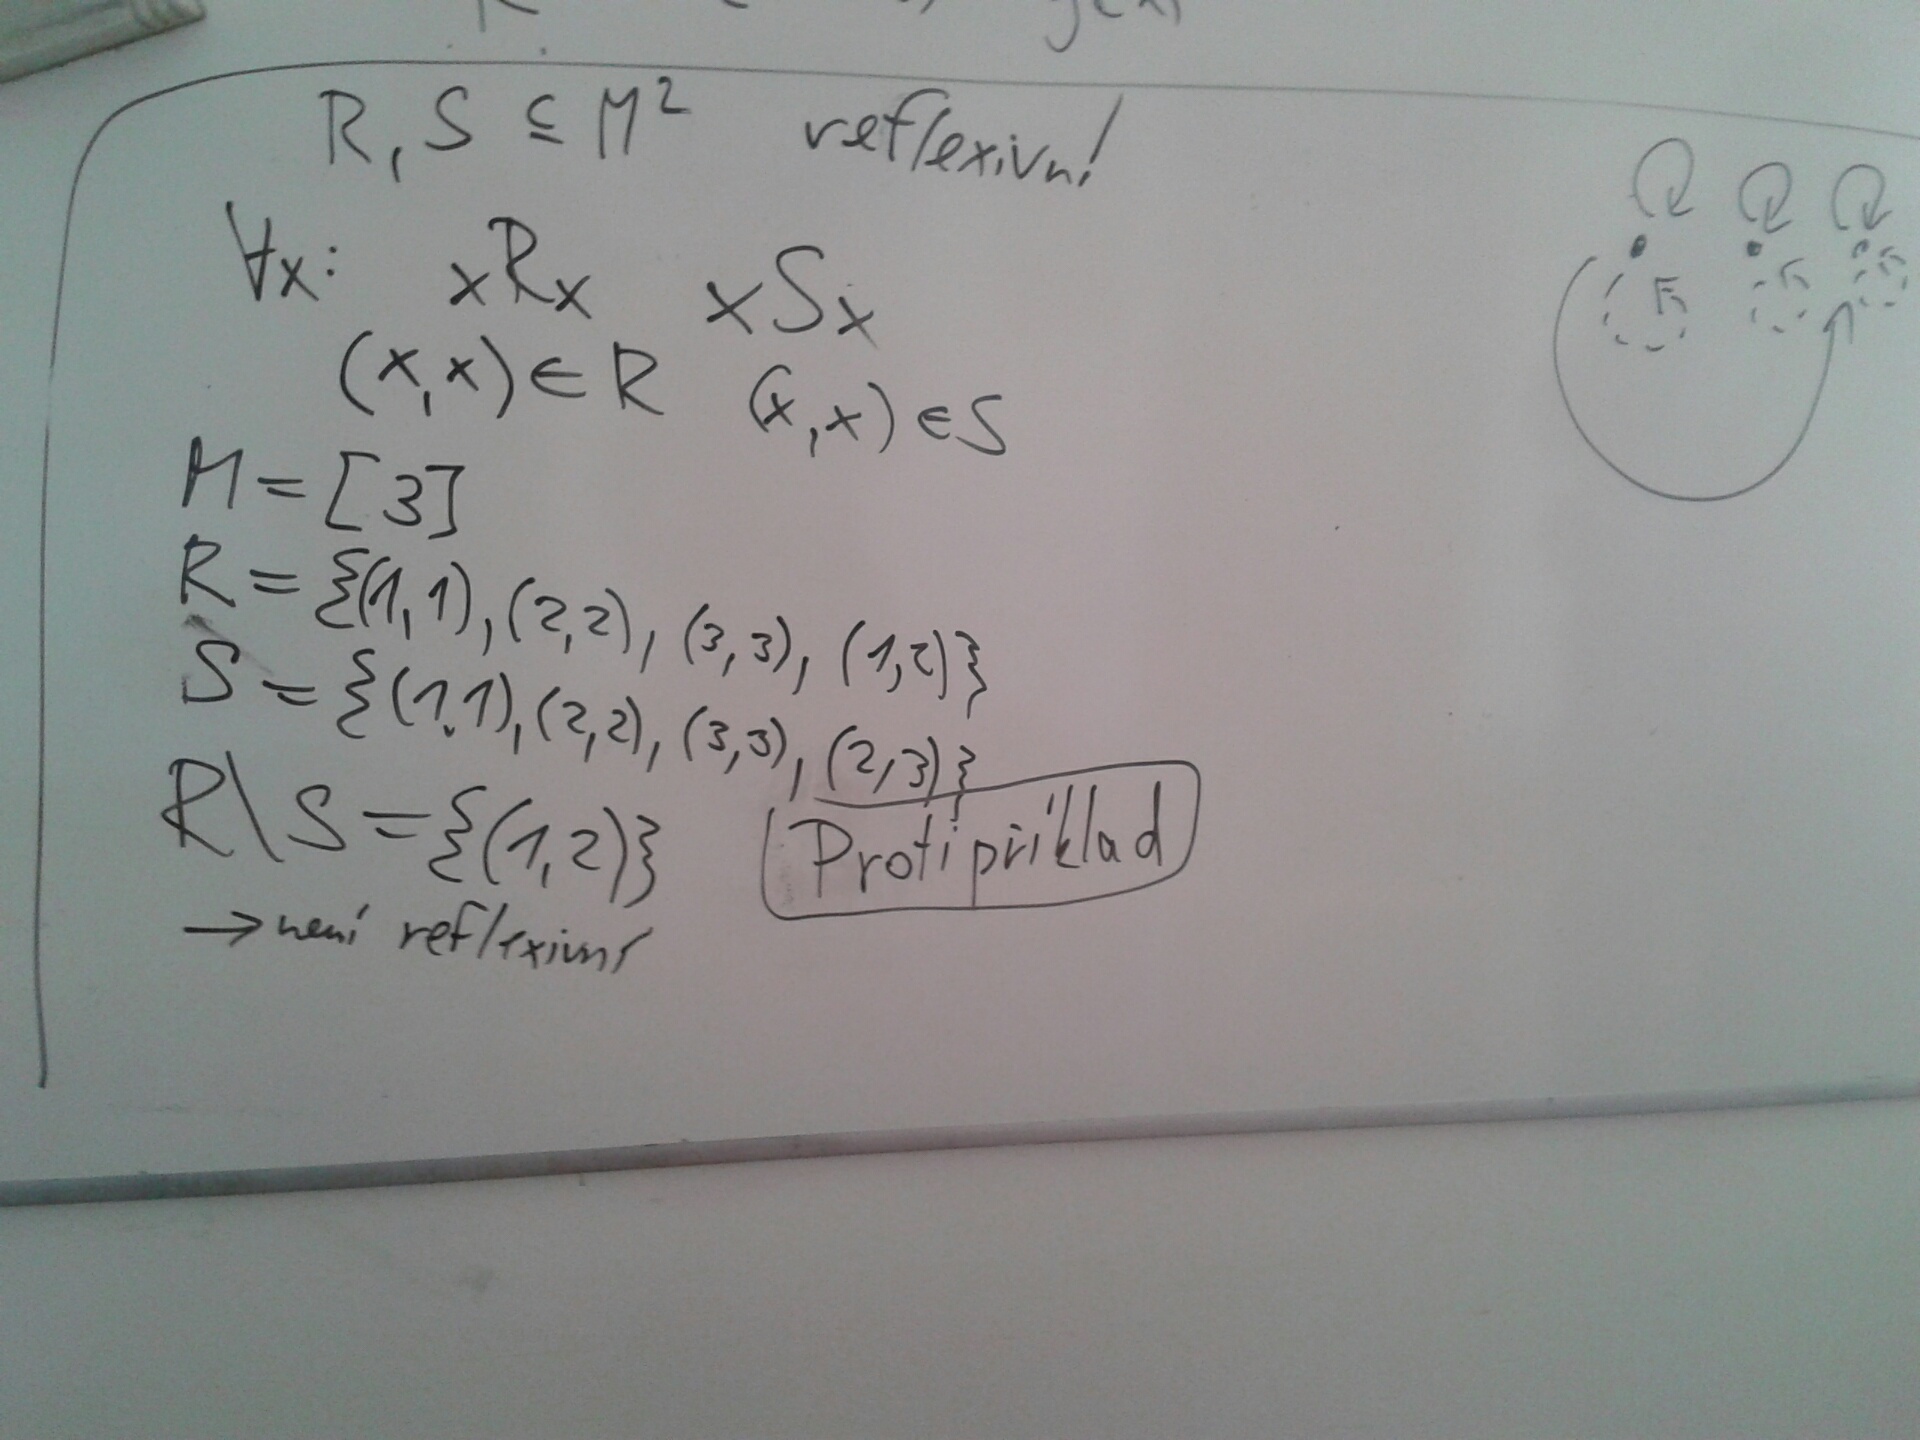 R, S ⊆ M² reflexivní
∀x: xRx xSx
(x,x) ∈ R (x,x) ∈ S
M = [3]
R = {(1,1), (2,2), (3,3), (1,2)}
S = {(1,1), (2,2), (3,3), (2,3)}
R\S = {(1,2)} Protipříklad
→ není reflexivní